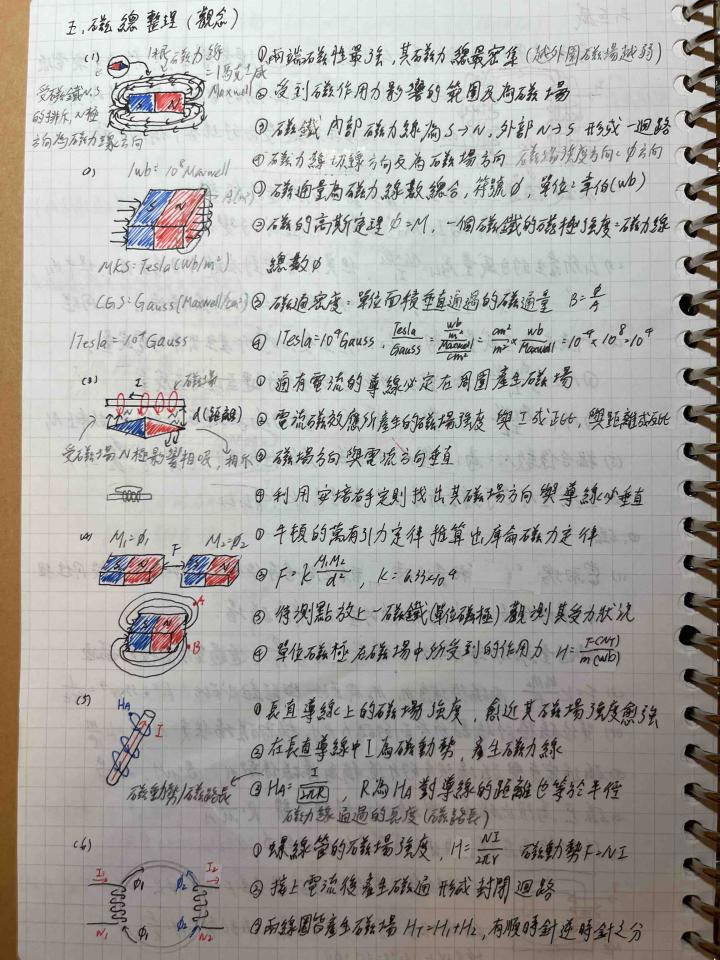 五、磁總整理(觀念)
(1)
1根磁力線
=1馬克士威
Maxwell
受磁鐵N.S
的排斥,N極
方向為磁力線方向
N
①兩端磁性最強,其磁力線最密集(越外圍磁場越弱)
②受到磁作用力影響的範圍及為磁場
③磁鐵內部磁力線為S→N,外部N→S形成一迴路
④磁力線切線方向及為磁場方向 磁場強度方向=φ方向
(2)
1wb=10⁸Maxwell
A(m²)
S N
MKS=Tesla(Wb/m²)
CGS=Gauss(Maxwell/cm²)
1Tesla=10⁴Gauss
①磁通量為磁力線數總合,符號φ,單位:韋伯(wb)
②磁的高斯定理φ=M,一個磁鐵的磁極強度=磁力線
總數φ
③磁通密度=單位面積垂直通過的磁通量 B=φ/A
④1Tesla=10⁴Gauss, Tesla/Gauss = (wb/m²)/(Maxwell/cm²) = cm²/m² × wb/Maxwell = 10⁻⁴×10⁸=10⁴
(3)
I
磁場
d(距離)
受磁場N極影響相吸,相斥
①通有電流的導線必定在周圍產生磁場
②電流磁效應所產生的磁場強度與I成正比,與距離成反比
③磁場方向與電流方向垂直
④利用安培右手定則找出其磁場方向與導線必垂直
(4)
M₁=φ₁
M₂=φ₂
F
A
B
①牛頓的萬有引力定律推算出庫侖磁力定律
②F=K M₁M₂/d², K=6.33×10⁴
③待測點放上一磁鐵(單位磁極)觀測其受力狀況
④單位磁極在磁場中所受到的作用力 H=F(NT)/m(wb)
(5)
HA
I
磁動勢/磁路長
①長直導線上的磁場強度,愈近其磁場強度愈強
②在長直導線中I為磁動勢,產生磁力線
③HA=I/2πR, R為HA對導線的距離也等於半徑
磁力線通過的長度(磁路長)
(6)
I₁
I₂
φ₁
φ₂
N₁
φ₁
φ₂
N₂
①螺線管的磁場強度,H=NI/2πr 磁動勢F=NI
②接上電流後產生磁通形成封閉迴路
③兩線圈皆產生磁場HT=H₁+H₂,有順時針逆時針之分